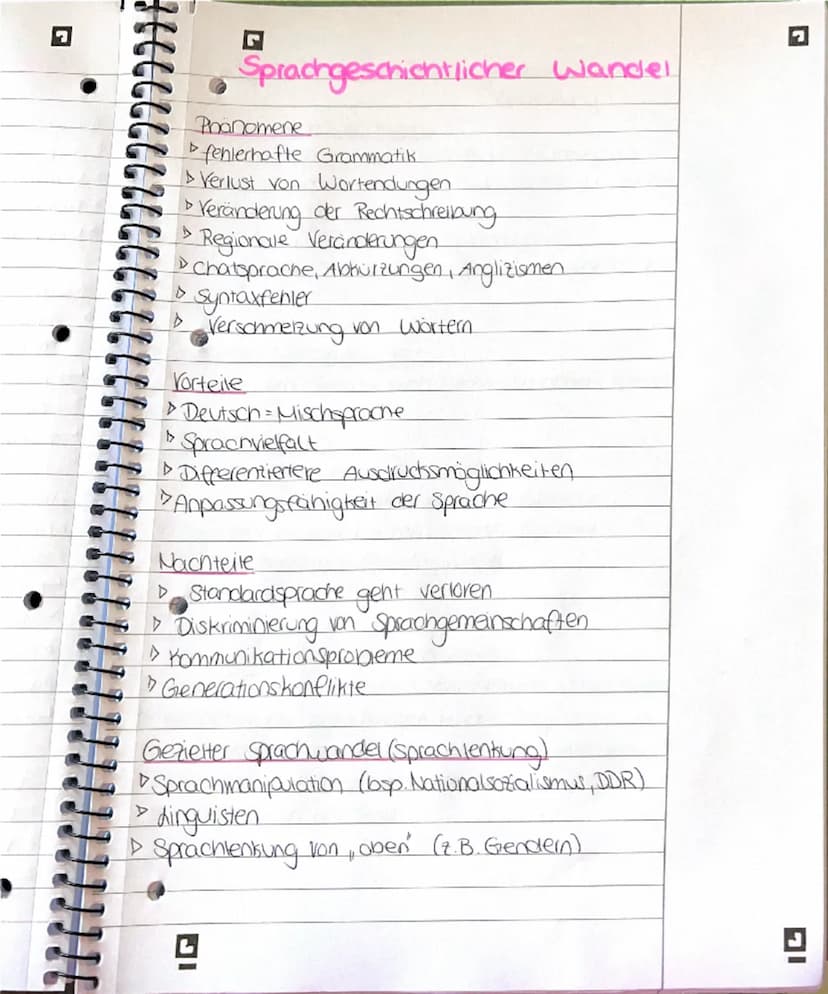 Sprachgeschichtlicher Wandel
Phänomene
▷ fehlerhafte Grammatik
▷ Verlust von Wortendungen
▷ Veränderung der Rechtschreibung
▷ Regionale Veränderungen
▷ Chatsprache, Abkürzungen, Anglizismen
▷ Syntaxfehler
▷ Verschmelzung von Wörtern
Vorteile
▷ Deutsch = Mischsprache
▷ Sprachvielfalt
▷ Differentiertere Ausdrucksmöglichkeiten
▷ Anpassungsfähigkeit der Sprache
Nachteile
▷ Standardsprache geht verloren
▷ Diskriminierung von Sprachgemeinschaften
▷ Kommunikationsprobleme
▷ Generationskonflikte
Gezielter Sprachwandel (Sprachlenkung)
▷ Sprachmanipulation (bsp. Nationalsozialismus, DDR)
▷ Linguisten
▷ Sprachlenkung von „oben" (z.B. Gendern)